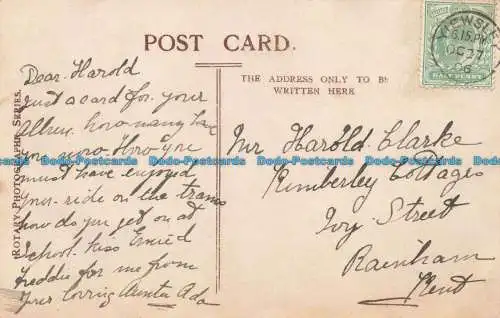 POST CARD.
THE ADDRESS ONLY TO BE
WRITTEN HERE.
ROTARY PHOTOGRAPHIC SERIES.
Dear Harold
Just a card for your
Album. how many have
you now. How you
must have enjoyed
your ride on the trams
how do you get on at
School. kiss Enid
Freddie for me from
Your loving Aunty Ada
Mr Harold Clarke
Kimberley Cottages
Ivy Street
Rainham
Kent
6.15 PM
OC 27
HALFPENNY
Dodo-Postcards Dodo-Postcards Dodo-Postcards Dodo-Postcards